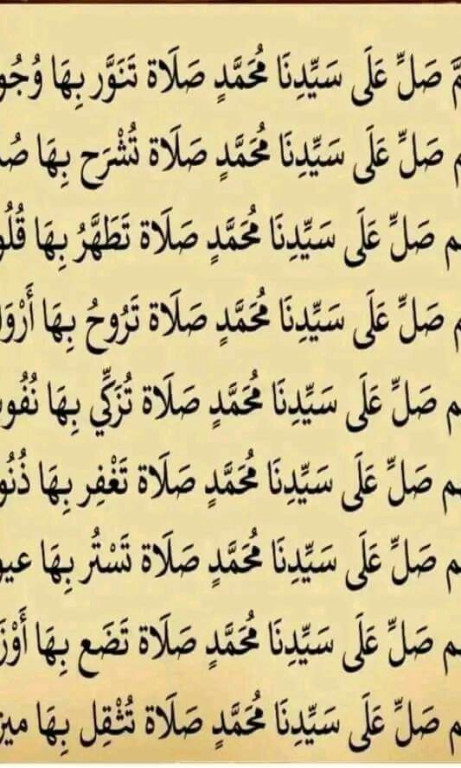 مَّ صَلِّ عَلَى سَيِّدِنَا مُحَمَّدٍ صَلَاة تَنَوَّر بِهَا وُجُو
م صَلِّ عَلَى سَيِّدِنَا مُحَمَّدٍ صَلَاة تُشْرَح بِهَا صُد
م صَلِّ عَلَى سَيِّدِنَا مُحَمَّدٍ صَلَاة تَطَهَّرُ بِهَا قُلُو
م صَلِّ عَلَى سَيِّدِنَا مُحَمَّدٍ صَلَاة تَرُوحُ بِهَا أَرْوَا
م صَلِّ عَلَى سَيِّدِنَا مُحَمَّدٍ صَلَاة تُزَكِّي بِهَا نُفُو
م صَلِّ عَلَى سَيِّدِنَا مُحَمَّدٍ صَلَاة تَغْفِر بِهَا ذُنُو
م صَلِّ عَلَى سَيِّدِنَا مُحَمَّدٍ صَلَاة تَسْتُر بِهَا عيو
م صَلِّ عَلَى سَيِّدِنَا مُحَمَّدٍ صَلَاة تَضَع بِهَا أَوْزَ
م صَلِّ عَلَى سَيِّدِنَا مُحَمَّدٍ صَلَاة تُثْقِل بِهَا ميز